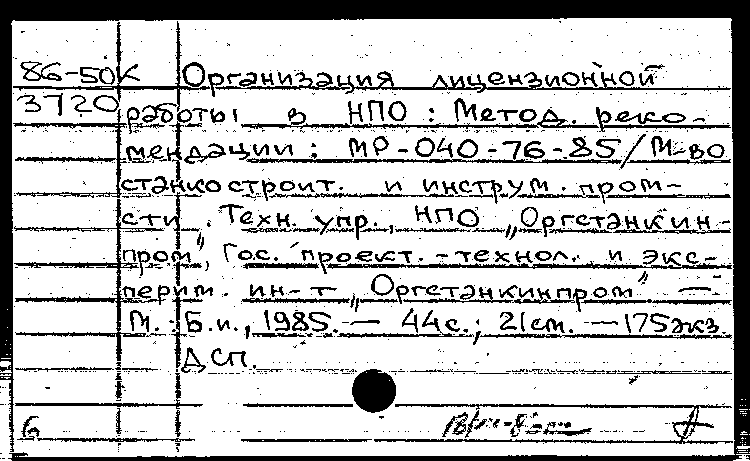 86-50К Организация лицензионной
3720 работы в НПО : Метод. реко-
мендации : МР-040-76-85/М-во
станкостроит. и инструм. пром-
сти. Техн. упр., НПО „Оргстанкин-
пром", Гос. проект.-технол. и экс-
перим. ин-т „Оргстанкинпром" —
М. : Б.и., 1985. — 44с.; 21см. — 175экз.
ДСП.
Б